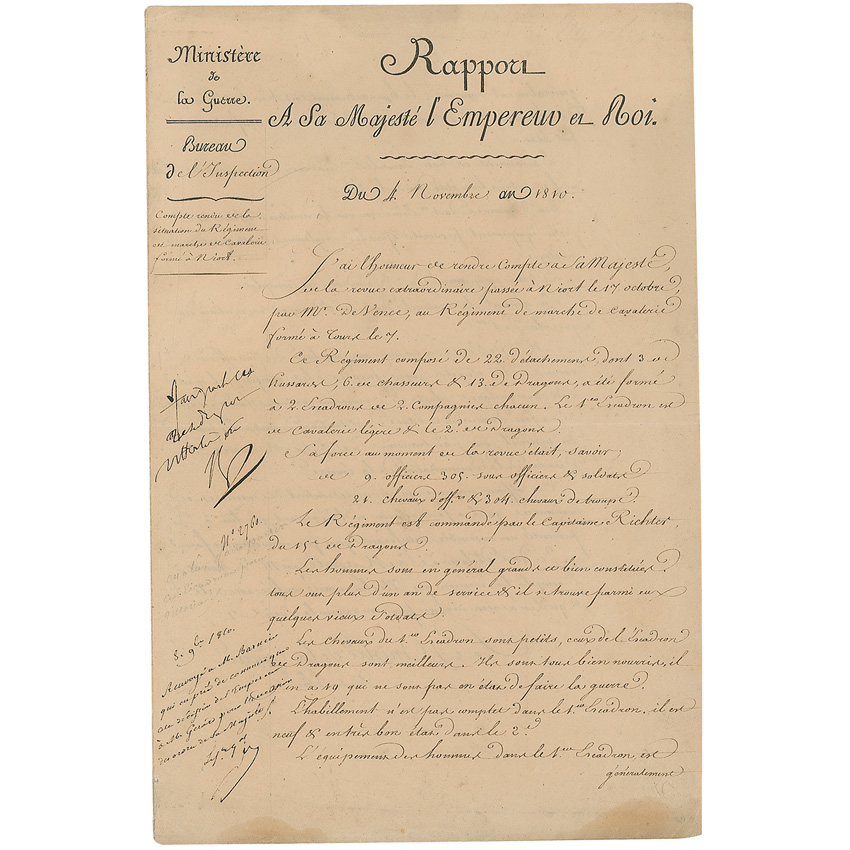 Ministère
de
la Guerre.
Bureau
de l'Inspection
Compte rendu de la
situation du Régiment
de marche de Cavalerie
formé à Niort.
Rapport
A Sa Majesté l'Empereur et Roi.
Du 4 Novembre an 1810.
J'ai l'honneur de rendre Compte à Sa Majesté,
de la revue extraordinaire passée à Niort le 17 octobre,
par Mr. De Vence, au Régiment de marche de cavalerie
formé à Tours le 7.
Ce Régiment composé de 22 détachemens dont 3 de
hussards, 6 de chasseurs & 13 de Dragons, a été formé
à 2 Escadrons de 2 Compagnies chacun. Le 1er Escadron est
de Cavalerie légère & le 2d de Dragons.
Sa force au moment de la revue était, savoir;
de 9 officiers 305 sous officiers & soldats
21 chevaux d'offrs & 304 chevaux de troupe.
Le Régiment est commandé par le Capitaine Richter,
du 15e de Dragons.
Les hommes sont en général grands et bien constitués,
tous ont plus d'un an de service & il se trouve parmi eux
quelques vieux soldats.
Les chevaux du 1er Escadron sont petits, ceux de l'Escadron
de Dragons sont meilleurs. Ils sont tous bien nourris, il
en a 19 qui ne sont pas en état de faire la guerre.
L'habillement n'est pas complet dans le 1er Escadron, il est
neuf & en très bon état dans le 2d
L'équipement des hommes dans le 1er Escadron, est
généralement
N
No 2760.
8. 9bre 1810.
Renvoyé à M. Barnier
qui est prié de communiquer
la décision de l'Empereur
à Mr Gérard pour l'exécution
des ordres de Sa Majesté.